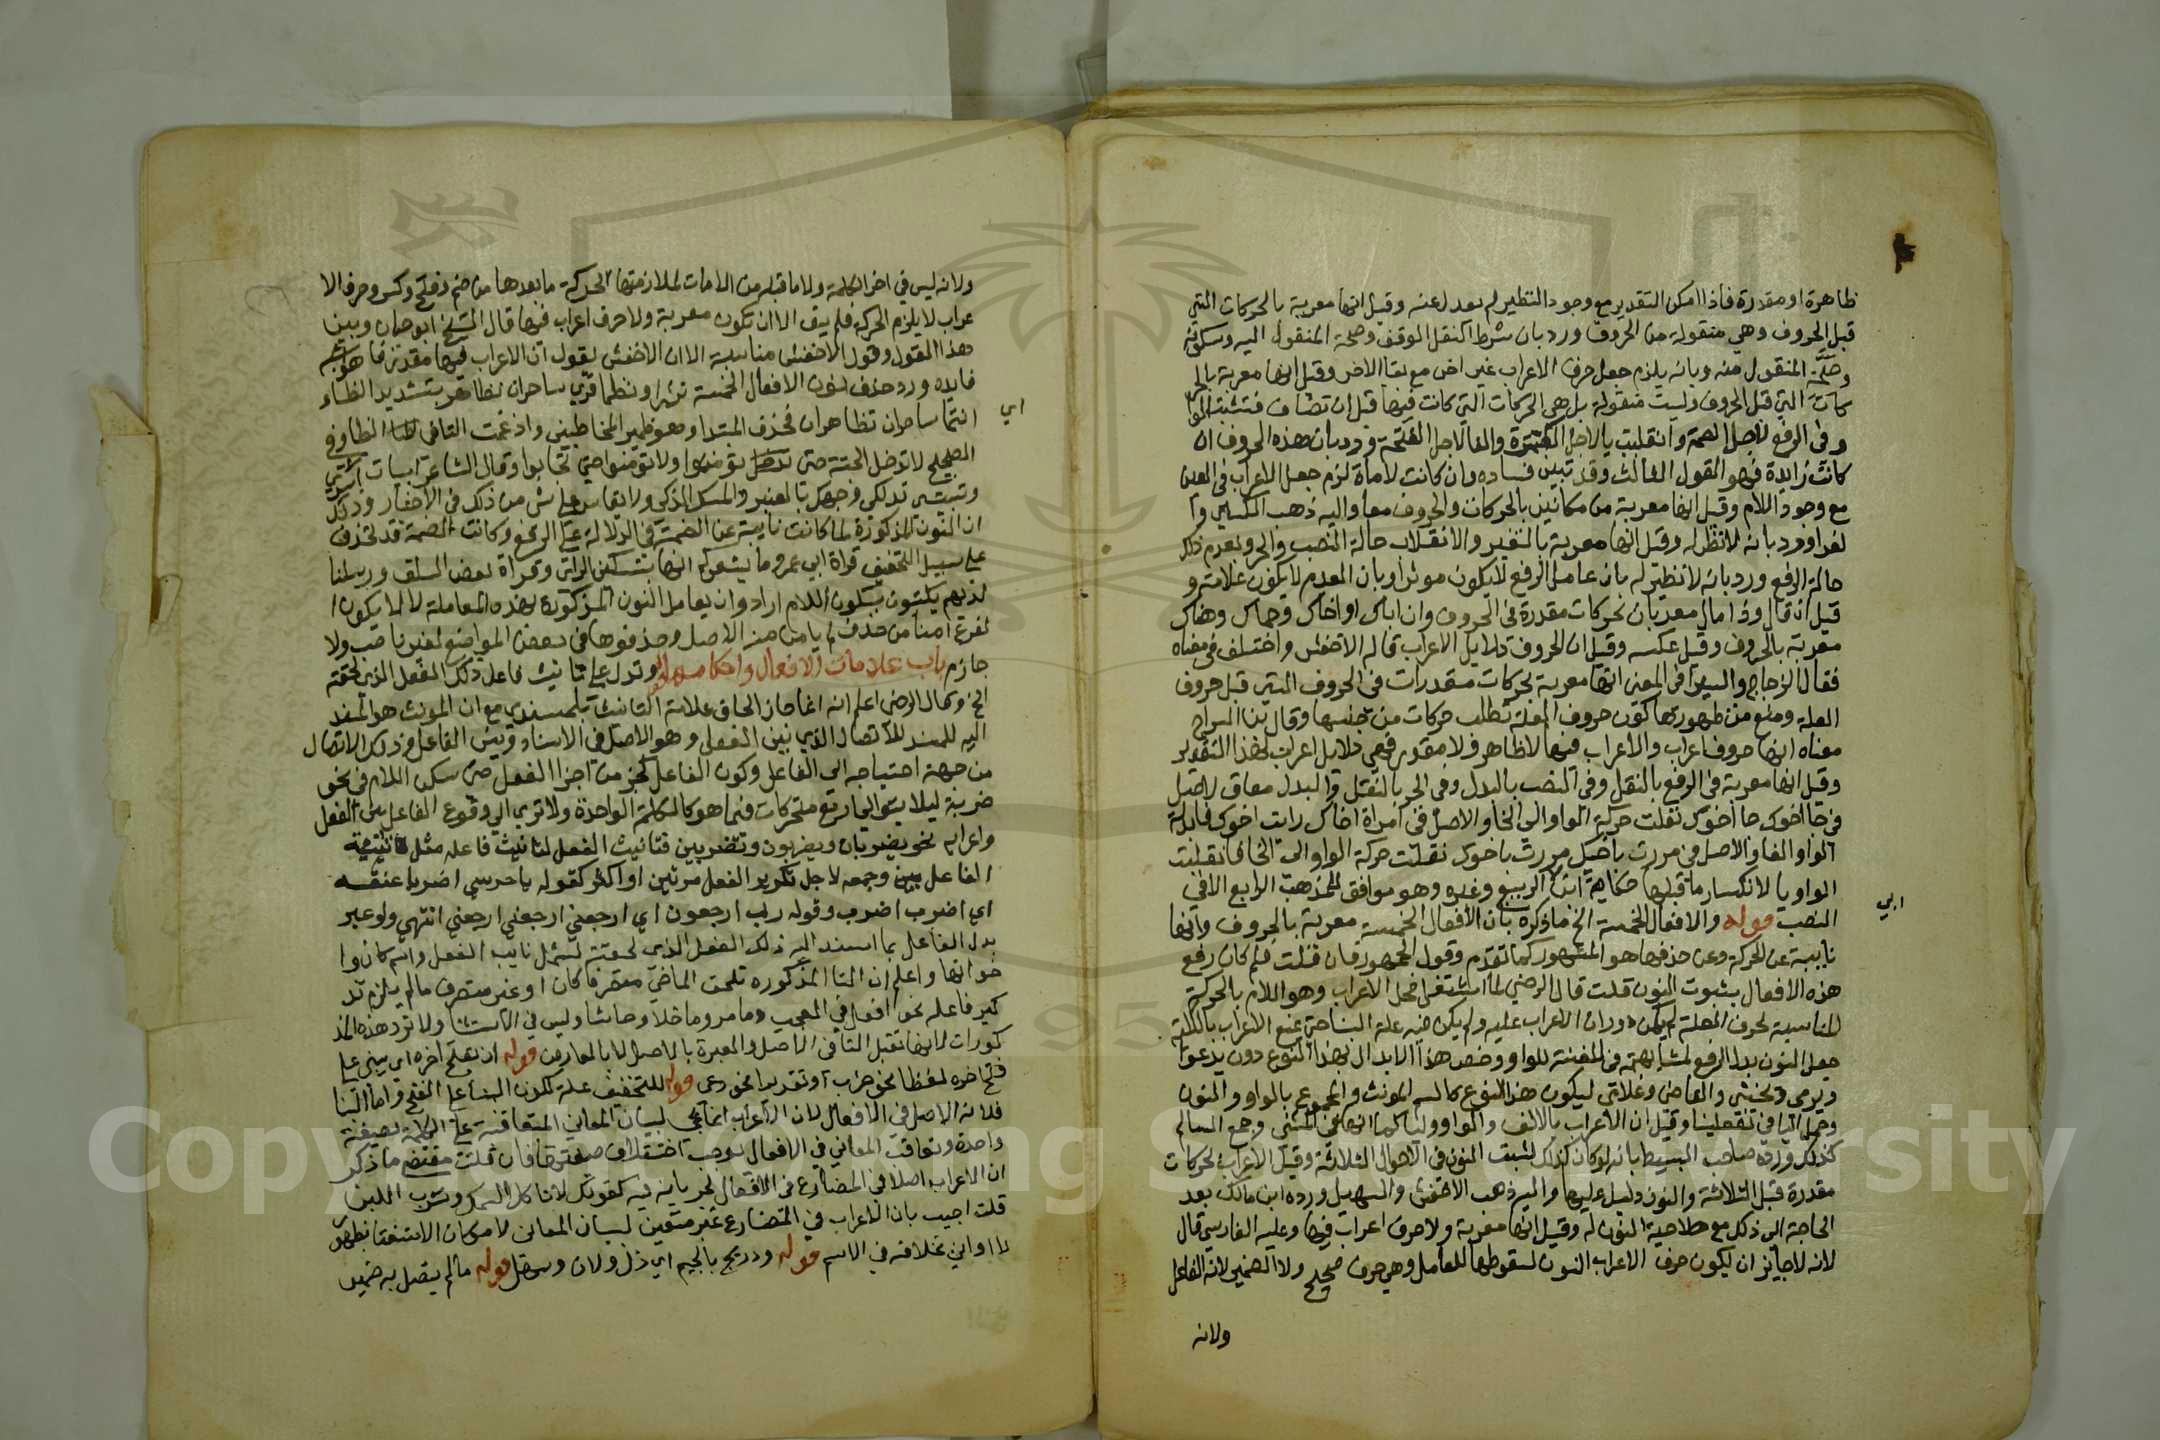 ظاهرة او مقدرة فاذا امكن التقدير مع وجود النظير لم يعدل عنه وقيل انها معربة بالحركات التي
قبل الحروف وهي منقولة من الحروف ورد بان شرط النقل الوقف وصحة المنقول اليه وسكونه
وصحة المنقول منه وبانه يلزم جعل حرف الاعراب غير اخر مع بقا الاخر وقيل انها معربة بالحر
كات التي قبل الحروف وليست منقولة بل هي الحركات التي كانت فيها قبل ان تضاف فتثبت الواو
في الرفع لاجل الضمة وانقلبت يا لاجل الكسرة والفا لاجل الفتحة ورد بان هذه الحروف ان
كانت زايدة فهو القول الثالث وقد تبين فساده وان كانت لاماة لزم جعل الاعراب في العين
مع وجود اللام وقيل انها معربة من مكانين بالحركات والحروف معا واليه ذهب الكساي وا
لفرا ورد بانه لا نظير له وقيل انها معربة بالتغير والانقلاب حالة النصب والجر وبعدم ذلك
حالة الرفع ورد بانه لا نظير له بان عامل الرفع لا يكون موثرا وبان العدم لا يكون علامة و
قيل ان قال وذا مال معربان بحركات مقدرة في الحروف وان اباك واخاك وحماك وهناك
معربة بالحروف وقيل عكسه وقيل ان الحروف دلايل الاعراب قاله الاخفش واختلف في معناه
فقال الزجاج والسيرافي المعنى انها معربة بحركات مقدرات في الحروف التي قبل حروف
العلة ومنع من ظهورها كون حروف العلة تطلب حركات من جنسها وقال بن السراج
معناه انها حروف اعراب والاعراب فيها لا ظاهر ولا مقدر فهي دلايل اعراب بهذا التقدير
وقيل انها معربة في الرفع بالنقل وفي النصب بالبدل وفي الجر بالنقل والبدل معا فالاصل
في جا اخوك جا اخوك نقلت حركة الواو الى الخا والاصل في رايت اخاك رايت اخوك فابدلة
الواو الفا والاصل في مررت باخيك مررت باخوك نقلت حركة الواو الى الخا فانقلبت
الواو يا لانكسار ما قبلها حكاه ابن ابي الربيع وغيره وهو موافق للمذهب الرابع الا في
النصب قوله والافعال الخمسة الخ ما ذكره بان الافعال الخمسة معربة بالحروف وانها
نايبة عن الحركة وعن حذفها هو المشهور كما تقدم وقول الجمهور فان قلت فلم كان رفع
هذه الافعال بثبوت النون قلت قال الرضي لما اشتغل محل الاعراب وهو اللام بالحركة
المناسبة لحرف العلة لم يمكن دوران الاعراب عليه ولم يكن فيه علة البنا حتى يمنع الاعراب بالكلية
جعل النون بدل الرفع لمشابهته في الغنة للواو وخص هذا الابدال بهذا النوع دون يدعوا
ويرمي ويخشى والقاضي وغلامي ليكون هذا النوع كالسـ المونث والمجموع بالواو والنون
وقيل ان الاعراب بالالف والواو واليا كما انها في المثنى وجمع السالم
كذلك ورده صاحب البسيط بانه لو كان كذلك لثبت النون في الاحوال الثلاثة وقيل الاعراب بحركات
مقدرة قبل الثلاثة والنون دليل عليها واليه ذهب الاخفش والسهيلي ورده ابن مالك بعد
الحاجة الى ذلك مع صلاحية النون له وقيل انها معربة ولا حرف اعراب فيها وعليه الفارسي قال
لانه لا جايز ان يكون حرف الاعراب النون لسقوطها للعامل وهي حرف صحيح ولا الضمير لانه الفاعل
ولانه
ابي
ولانه ليس في اخر الكلمة ولا ما قبله من اللامات لملازمتها الحركة ما بعدها من ضم وفتح وكسر وحرف الا
عراب لا يلزم الحركة فلم يبق الا ان تكون معربة ولا حرف اعراب فيها قال الشيخ ابو حيان وبين
هذا القول وقول الاخفش مناسبة الا ان الاخفش يقول ان الاعراب فيها مقدر
فايدة ورد حذف نون الافعال الخمسة نثرا ونظما قري ساحران تظاهرا بتشديد الظاء
اي
انتما ساحران تتظاهران فحذف المبتدا وهو ضمير المخاطبين وادغمت التا في الظا وفي
الصحيح لا تدخلوا الجنة حتى تومنوا ولا تومنوا حتى تحابوا وقال الشاعر ابيت اسري
وتبيتي تدلكي وجهك بالعنبر والمسك الذكي ولا يقاس على شي من ذلك في الاختيار وذلك
ان النون المذكورة لما كانت نايبة عن الضمة في الدلالة على الرفع وكانت الضمة قد تحذف
على سبيل التخفيف قراة ابي عمرو وما يشعركم انها بتسكين الراى وقراة بعض السلف ورسلنا
لديهم يكتبون بسكون اللام ارادوا ان يعامل النون المذكورة بهذه المعاملة لئلا يكون ا
لفرع امنا من حذف لم يامن منه الاصل وحذفوها في بعض المواضع لغير ناصب ولا
جازم باب علامات الافعال واحكامها قوله وتدل على تانيث فاعل ذلك الفعل الذي لحقته
الخ وقال الرضي اعلم انه انما جاز الحاق علامة التانيث بالمسند مع ان المونث هو المسند
اليه للمسند للاتصال الذي بين الفعل وهو الاصل في الاسناد وبين الفاعل وذلك الاتصال
من جهة احتياجه الى الفاعل وكون الفاعل كجزء من اجزا الفعل حتى سكن اللام في نحو
ضربت ليلا يتوالى اربع متحركات فيما هو كالكلمة الواحدة ولا ترى الي وقوع الفاعل بين الفعل
واعرابه نحو يضربان ويضربون وتضربين فتانيث الفعل لتانيث فاعله مثل تثنية
الفاعل وجمعه لاجل تكرير الفعل مرتين او اكثر كقوله يا حرسي اضربا عنقه
اي اضرب اضرب وقوله رب ارجعون اي ارجعني ارجعني ارجعني انتهى ولو عبر
بدل الفاعل بما اسند اليه ذلك الفعل الذي لحقته لشمل نايب الفعل واسم كان وا
خواتها واعلم ان التا المذكورة تلحق الماضي متصرفا كان او غير متصرف ما لم يلزم تذ
كير فاعله نحو افعل في التعجب وما مر وما خلا وحاشا وليس في الاستثنا ولا ترد هذه المذ
كورات لانها تقبل التا في الاصل والعبرة بالاصل لا بالعارض قوله ان يفتح اخره اي يبنى على
فتح اخره لفظا نحو ضرب او تقديرا نحو دعى قوله للتخفيف علة لكون البنا على الفتح واما البنا
فلانه الاصل في الافعال لان الاعراب انما يجي لبيان المعاني المتعاقبة على الكلمة بصيغة
واحدة وتعاقب المعاني في الافعال يوجب اختلاف صيغها فان قلت مقتضى ما ذكر
ان الاعراب اصلا في المضارع في الافعال لجريانه فيه كقولك لا تاكل السمك وتشرب اللبن
قلت اجيب بان الاعراب في المضارع غير متعين لبيان المعاني لامكان الاستغنا بظهو
لا واين بخلافه في الاسم قوله ودربج بالجيم اي ذل ولان وسهل قوله ما لم يتصل به ضمير
Copyright © King Saud University